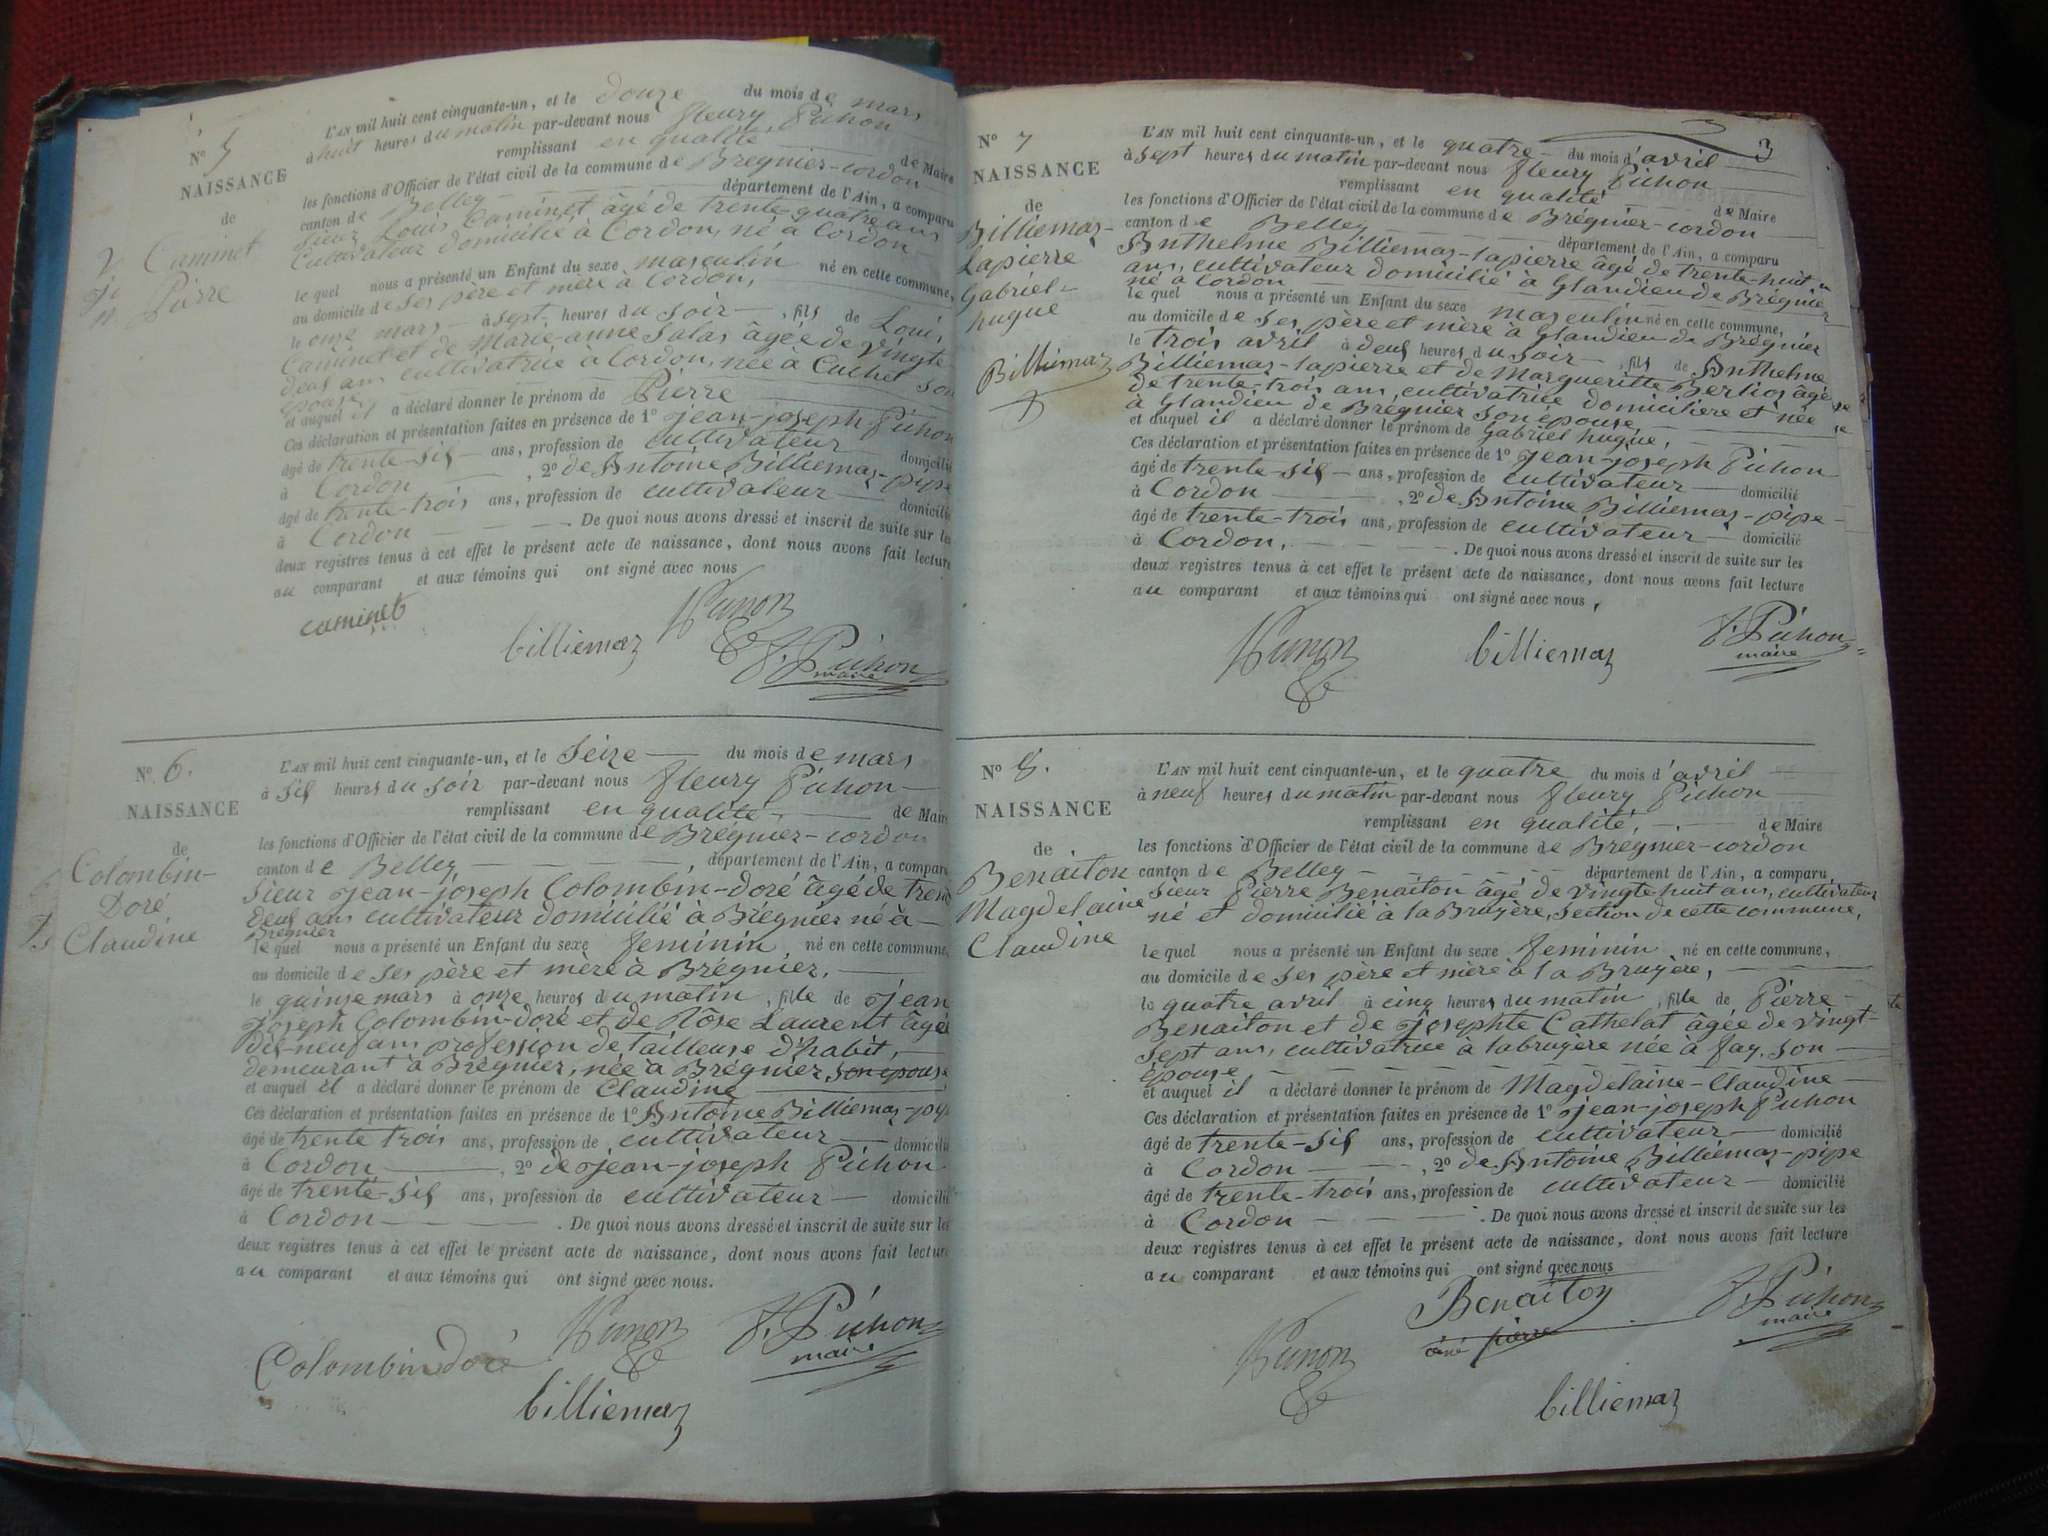 N° 5
NAISSANCE
de
Caminet
Pierre
L'AN mil huit cent cinquante-un, et le douze du mois de mars
à huit heures du matin par-devant nous fleury Pichon
remplissant en qualité de Maire
les fonctions d'Officier de l'état civil de la commune de Brégnier-cordon
canton de Belley département de l'Ain, a comparu
Sieur Louis Caminet âgé de trente quatre ans
Cultivateur domicilié à Cordon, né à Cordon
le quel nous a présenté un Enfant du sexe masculin né en cette commune,
au domicile de ses père et mère à Cordon,
le onze mars à sept heures du soir, fils de Louis
Caminet et de Marie-anne Salas âgée de vingte
deus ans cultivatrice à Cordon, née à Cuchet son
épouse
et auquel il a déclaré donner le prénom de Pierre
Ces déclaration et présentation faites en présence de 1° jean-joseph Pichon
âgé de trente-sis ans, profession de cultivateur domicilié
à Cordon, 2° de Antoine Billiemas-pipe
âgé de trente-trois ans, profession de cultivateur domicilié
à Cordon. De quoi nous avons dressé et inscrit de suite sur les
deux registres tenus à cet effet le présent acte de naissance, dont nous avons fait lecture
au comparant et aux témoins qui ont signé avec nous
caminet
billiemaz
F. Pichon
maire
N° 6.
NAISSANCE
de
Colombin-
Doré
Claudine
L'AN mil huit cent cinquante-un, et le Seize du mois de mars
à sis heures du soir par-devant nous fleury Pichon
remplissant en qualité de Maire
les fonctions d'Officier de l'état civil de la commune de Brégnier-cordon
canton de Belley, département de l'Ain, a comparu
Sieur jean-joseph Colombin-doré âgé de trente
deus ans cultivateur domicilié à Brégnier né à
Brégnier
le quel nous a présenté un Enfant du sexe feminin né en cette commune,
au domicile de ses père et mère à Brégnier,
le quinse mars à onze heures du matin, fille de jean
joseph Colombin-doré et de Rôse Laurent âgée
dis-neuf ans profession de tailleuse d'habit,
demeurant à Brégnier, née à Brégnier, son épouse
et auquel il a déclaré donner le prénom de Claudine
Ces déclaration et présentation faites en présence de 1° Antoine Billiemas-pipe
âgé de trente trois ans, profession de cultivateur domicilié
à Cordon, 2° de jean-joseph Pichon
âgé de trente-sis ans, profession de cultivateur domicilié
à Cordon. De quoi nous avons dressé et inscrit de suite sur les
deux registres tenus à cet effet le présent acte de naissance, dont nous avons fait lecture
au comparant et aux témoins qui ont signé avec nous.
Colombin doré
F. Pichon
maire
billiemaz
3
N° 7
NAISSANCE
de
Billiemas-
Lapierre
Gabriel-
hugue
Billiemaz
L'AN mil huit cent cinquante-un, et le quatre du mois d'avril
à sept heures du matin par-devant nous fleury Pichon
remplissant en qualité de Maire
les fonctions d'Officier de l'état civil de la commune de Brégnier-cordon
canton de Belley département de l'Ain, a comparu
Anthelme Billiemas-lapierre âgé de trente-huit
ans, cultivateur domicilié à Glandieu de Brégnier
né à Cordon
le quel nous a présenté un Enfant du sexe masculin né en cette commune,
au domicile de ses père et mère à Glandieu de Brégnier
le trois avril à deus heures du soir, fils de Anthelme
Billiemas-lapierre et de Margueritte Berlios âgée
de trente-trois ans, cultivatrice domiciliere et née
à Glandieu de Brégnier son épouse
et auquel il a déclaré donner le prénom de Gabriel hugue,
Ces déclaration et présentation faites en présence de 1° jean-joseph Pichon
âgé de trente-sis ans, profession de cultivateur domicilié
à Cordon, 2° de Antoine Billiemas-pipe
âgé de trente-trois ans, profession de cultivateur domicilié
à Cordon,. De quoi nous avons dressé et inscrit de suite sur les
deux registres tenus à cet effet le présent acte de naissance, dont nous avons fait lecture
au comparant et aux témoins qui ont signé avec nous,
billiemaz
F. Pichon
maire
N° 8.
NAISSANCE
de
Benaiton
Magdelaine
Claudine
L'AN mil huit cent cinquante-un, et le quatre du mois d'avril
à neuf heures du matin par-devant nous fleury Pichon
remplissant en qualité, de Maire
les fonctions d'Officier de l'état civil de la commune de Brégnier-cordon
canton de Belley département de l'Ain, a comparu
Sieur Pierre Benaiton âgé de vingte huit ans, cultivateur
né et domicilié à la Bruyère, section de cette commune,
le quel nous a présenté un Enfant du sexe feminin né en cette commune,
au domicile de ses père et mère à la Bruyère,
le quatre avril à cinq heures du matin, fille de Pierre
Benaiton et de josephte Cathelat âgée de vingt-
sept ans, cultivatrice à labruyère née à fay, son
épouse
et auquel il a déclaré donner le prénom de Magdelaine-Claudine
Ces déclaration et présentation faites en présence de 1° jean-joseph Pichon
âgé de trente-sis ans, profession de cultivateur domicilié
à Cordon, 2° de Antoine Billiemas-pipe
âgé de trente-trois ans, profession de cultivateur domicilié
à Cordon. De quoi nous avons dressé et inscrit de suite sur les
deux registres tenus à cet effet le présent acte de naissance, dont nous avons fait lecture
au comparant et aux témoins qui ont signé avec nous
Benaiton
pierre
F. Pichon
maire
billiemaz